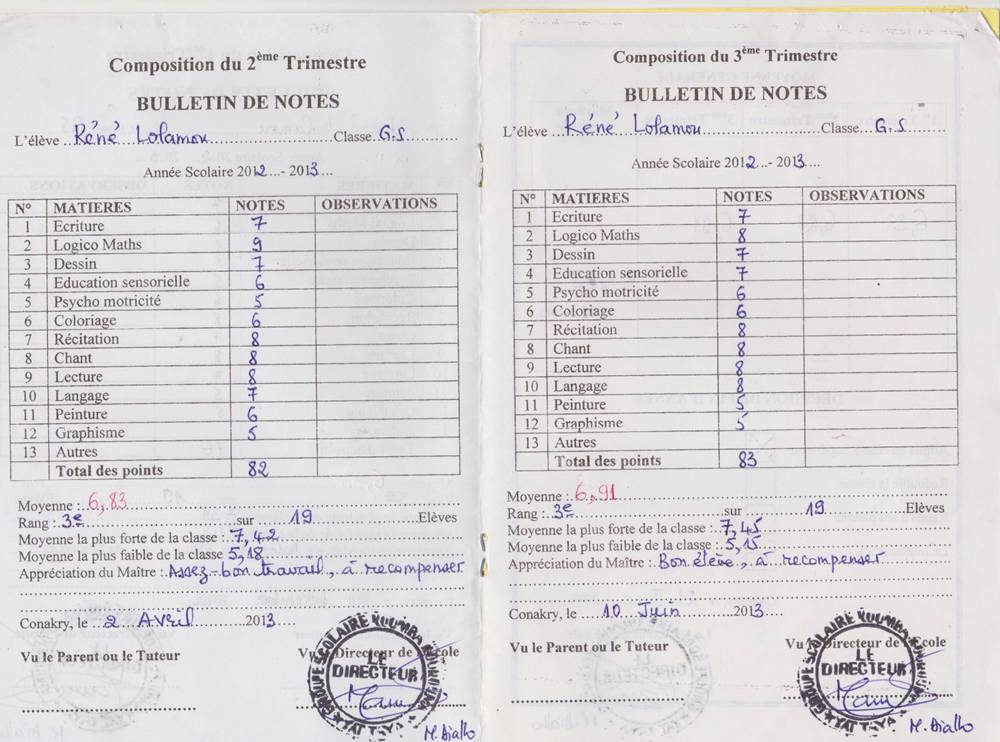 Composition du 2ème Trimestre
BULLETIN DE NOTES
L'élève ...Réné Lolamou...Classe G.S
Année Scolaire 2012...- 2013....
N° MATIERES NOTES OBSERVATIONS
1 Ecriture 7
2 Logico Maths 9
3 Dessin 7
4 Education sensorielle 6
5 Psycho motricité 5
6 Coloriage 6
7 Récitation 8
8 Chant 8
9 Lecture 8
10 Langage 7
11 Peinture 6
12 Graphisme 5
13 Autres
Total des points 82
Moyenne : 6,83
Rang : 3e sur 19 Elèves
Moyenne la plus forte de la classe : 7,42
Moyenne la plus faible de la classe 5,18
Appréciation du Maître : Assez-bon travail, à recompenser
Conakry, le ....2 Avril.........2013
Vu le Parent ou le Tuteur
Vu le Directeur de l'école
LE
DIRECTEUR
M. Dialho
Composition du 3ème Trimestre
BULLETIN DE NOTES
L'élève ...Réné Lolamou...Classe....G.S
Année Scolaire 2012...- 2013....
N° MATIERES NOTES OBSERVATIONS
1 Ecriture 7
2 Logico Maths 8
3 Dessin 7
4 Education sensorielle 7
5 Psycho motricité 6
6 Coloriage 6
7 Récitation 8
8 Chant 8
9 Lecture 8
10 Langage 8
11 Peinture 5
12 Graphisme 5
13 Autres
Total des points 83
Moyenne : 6,91
Rang : 3e sur 19 Elèves
Moyenne la plus forte de la classe : 7,45
Moyenne la plus faible de la classe : 5,15
Appréciation du Maître : Bon élève, à recompenser
Conakry, le ....10 Juin.........2013
Vu le Parent ou le Tuteur
Vu le Directeur de l'Ecole
LE
DIRECTEUR
M. Dialho